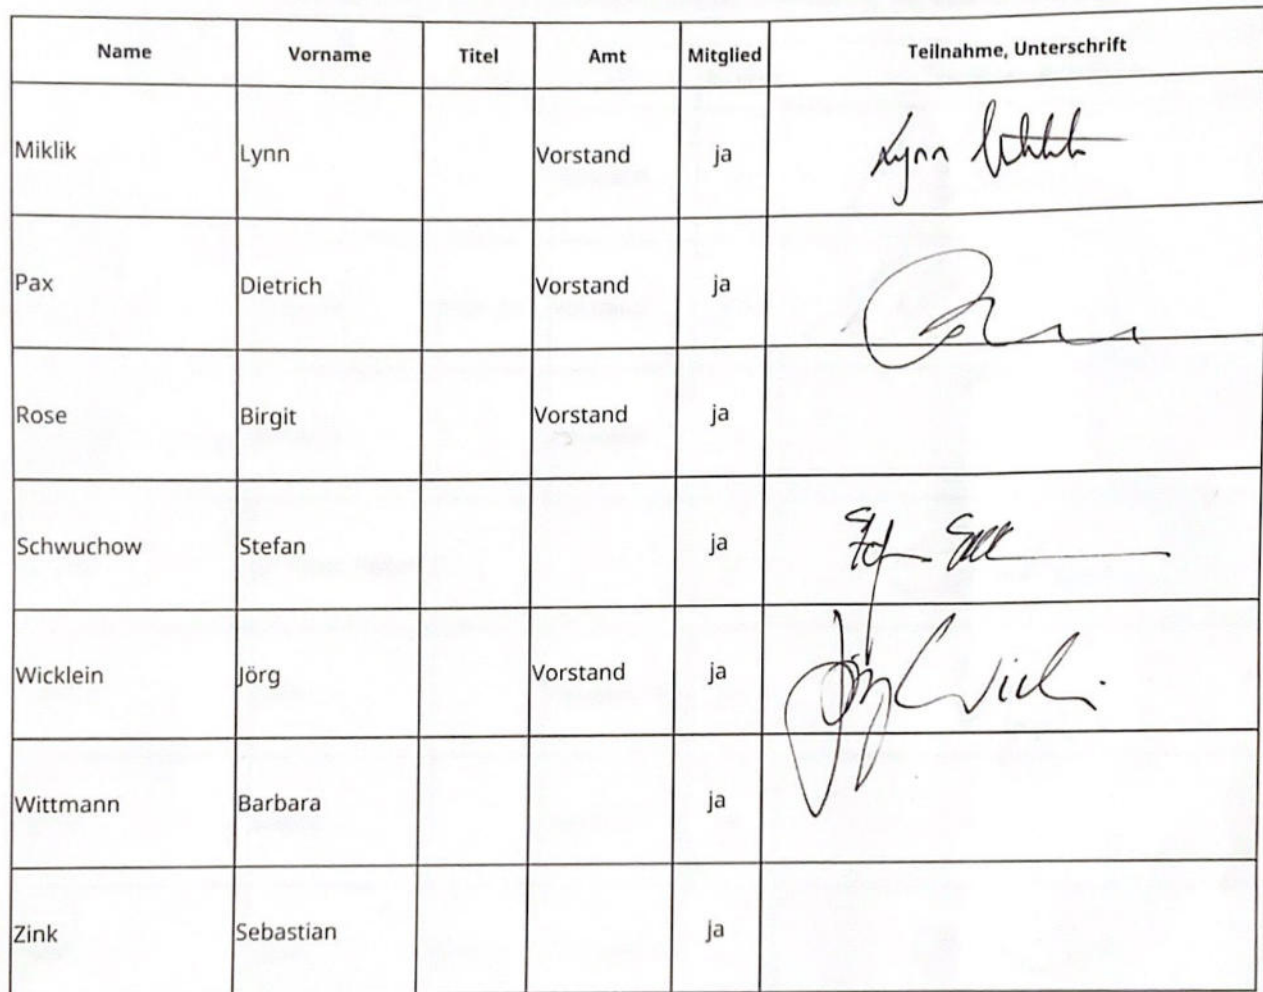 Name Vorname Titel Amt Mitglied Teilnahme, Unterschrift
Miklik Lynn Vorstand ja Lynn
Pax Dietrich Vorstand ja
Rose Birgit Vorstand ja
Schwuchow Stefan ja
Wicklein Jörg Vorstand ja Jörg
Wittmann Barbara ja
Zink Sebastian ja